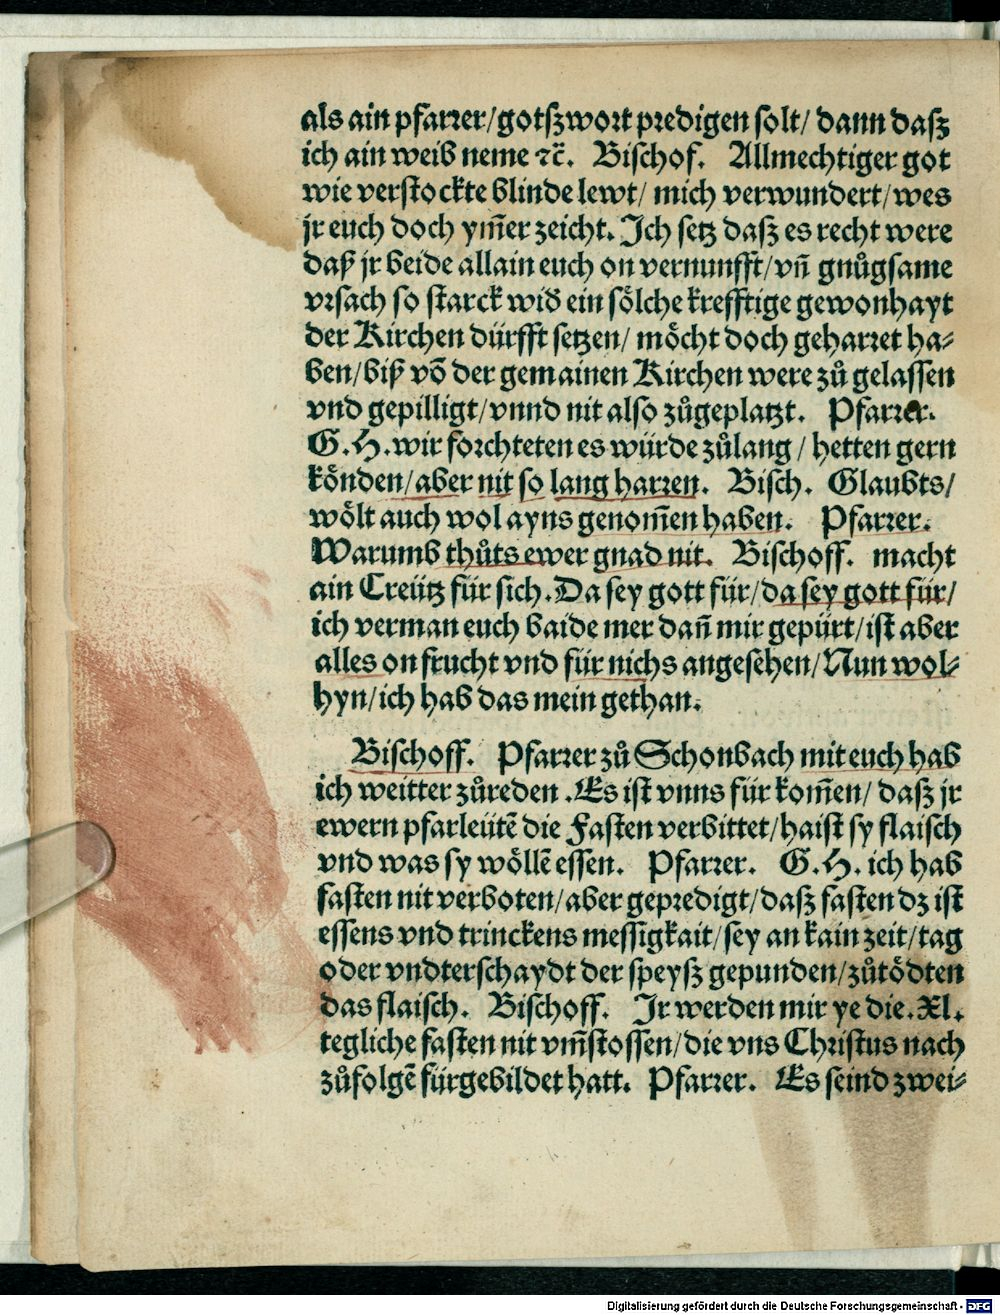 als ain pfarrer/gotszwort predigen solt/ dann dasz
ich ain weib neme ⁊c̃. Bischof. Allmechtiger got
wie verstockte blinde lewt/ mich verwundert/wes
jr euch doch ym̃er zeicht. Ich setz dasz es recht were
daß jr beide allain euch on vernunfft/vñ gnůgsame
vrsach so starck wid̃ ein sölche krefftige gewonhayt
der Kirchen dürfft setzen/ möcht doch geharret ha⸗
ben/biß võ der gemainen Kirchen were zů gelassen
vnd gepilligt/vnnd nit also zůgeplatzt. Pfarrer.
G.H.wir forchteten es würde zůlang/ hetten gern
könden/aber nit so lang harren. Bisch. Glaubts/
wölt auch wol ayns genom̃en haben. Pfarrer.
Warumb thůts ewer gnad nit. Bischoff. macht
ain Creütz für sich.Da sey gott für/da sey gott für/
ich verman euch baide mer dañ mir gepürt/ist aber
alles on frucht vnd für nichs angesehen/Nun wol⸗
hyn/ich hab das mein gethan.
Bischoff. Pfarrer zů Schonbach mit euch hab
ich weitter zůreden.Es ist vnns für kom̃en/ dasz jr
ewern pfarleütẽ die Fasten verbittet/haist sy flaisch
vnd was sy wöllẽ essen. Pfarrer. G.H. ich hab
fasten nit verboten/aber gepredigt/dasz fasten dz ist
essens vnd trinckens messigkait/sey an kain zeit/tag
oder vndterschaydt der speysz gepunden/zůtödten
das flaisch. Bischoff. Jr werden mir ye die.Xl.
tegliche fasten nit vm̃stossen/die vns Christus nach
zůfolgẽ fürgebildet hatt. Pfarrer. Es seind zwei⸗
Digitalisierung gefördert durch die Deutsche Forschungsgemeinschaft - DFG